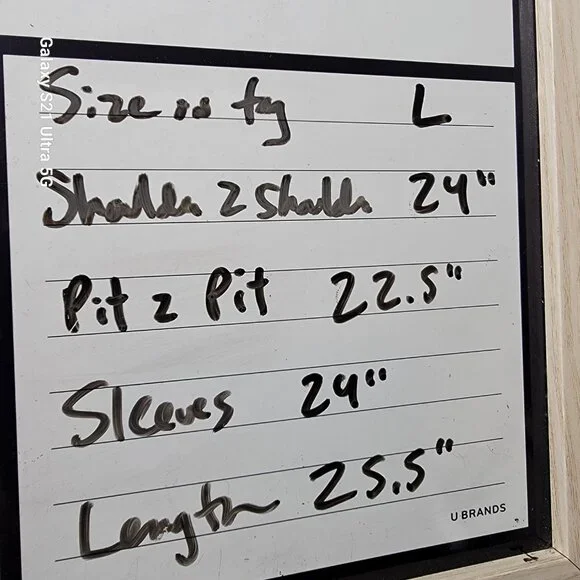 Galaxy S21 Ultra 5G
Size on tag L
Shoulder 2 Shoulder 24"
Pit 2 Pit 22.5"
Sleeves 24"
Length 25.5"
U BRANDS